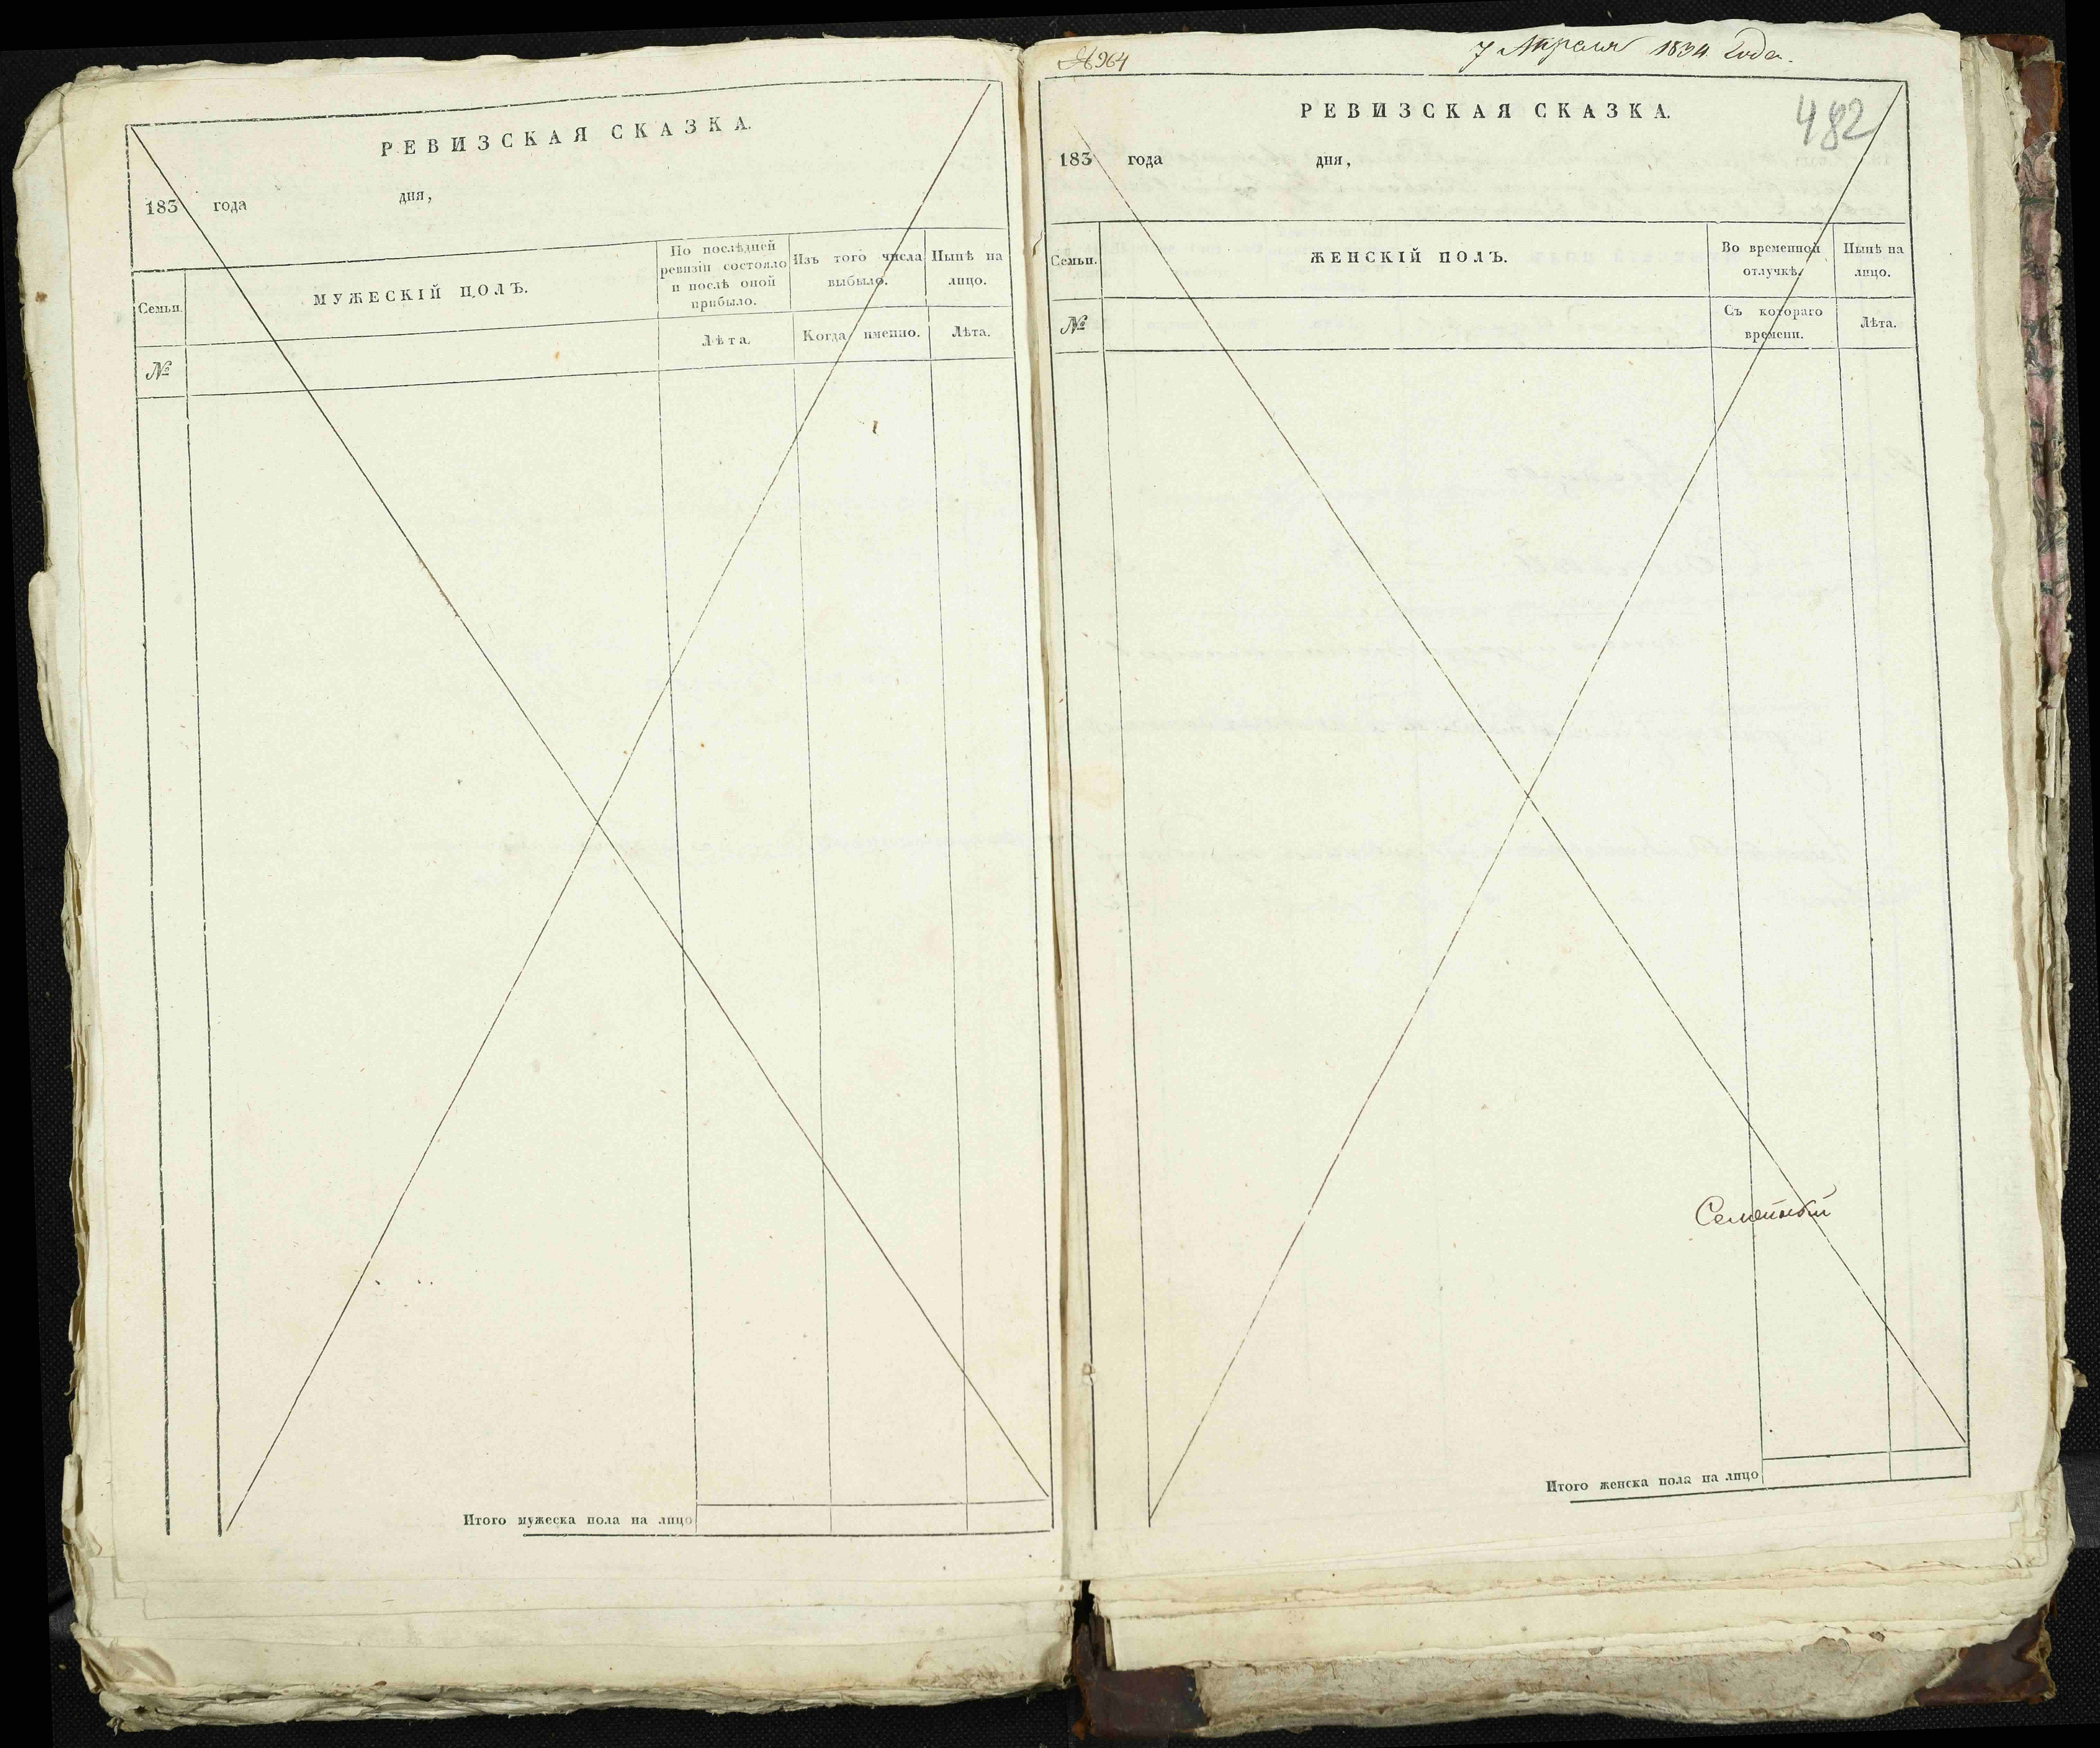 РЕВИЗСКАЯ СКАЗКА.
183 года дня,
Семьи.
МУЖЕСКІЙ ПОЛЪ.
По послѣдней
ревизіи состояло
и послѣ оной
прибыло.
Изъ того числа
выбыло.
Нынѣ на
лицо.
№
Лѣта.
Когда именно.
Лѣта.
Итого мужеска пола на лицо
№ 964
7 Апреля 1834 года.
482
РЕВИЗСКАЯ СКАЗКА.
183 года дня,
Семьи.
ЖЕНСКІЙ ПОЛЪ.
Во временной
отлучкѣ.
Нынѣ на
лицо.
№
Съ котораго
времени.
Лѣта.
Итого женска пола на лицо